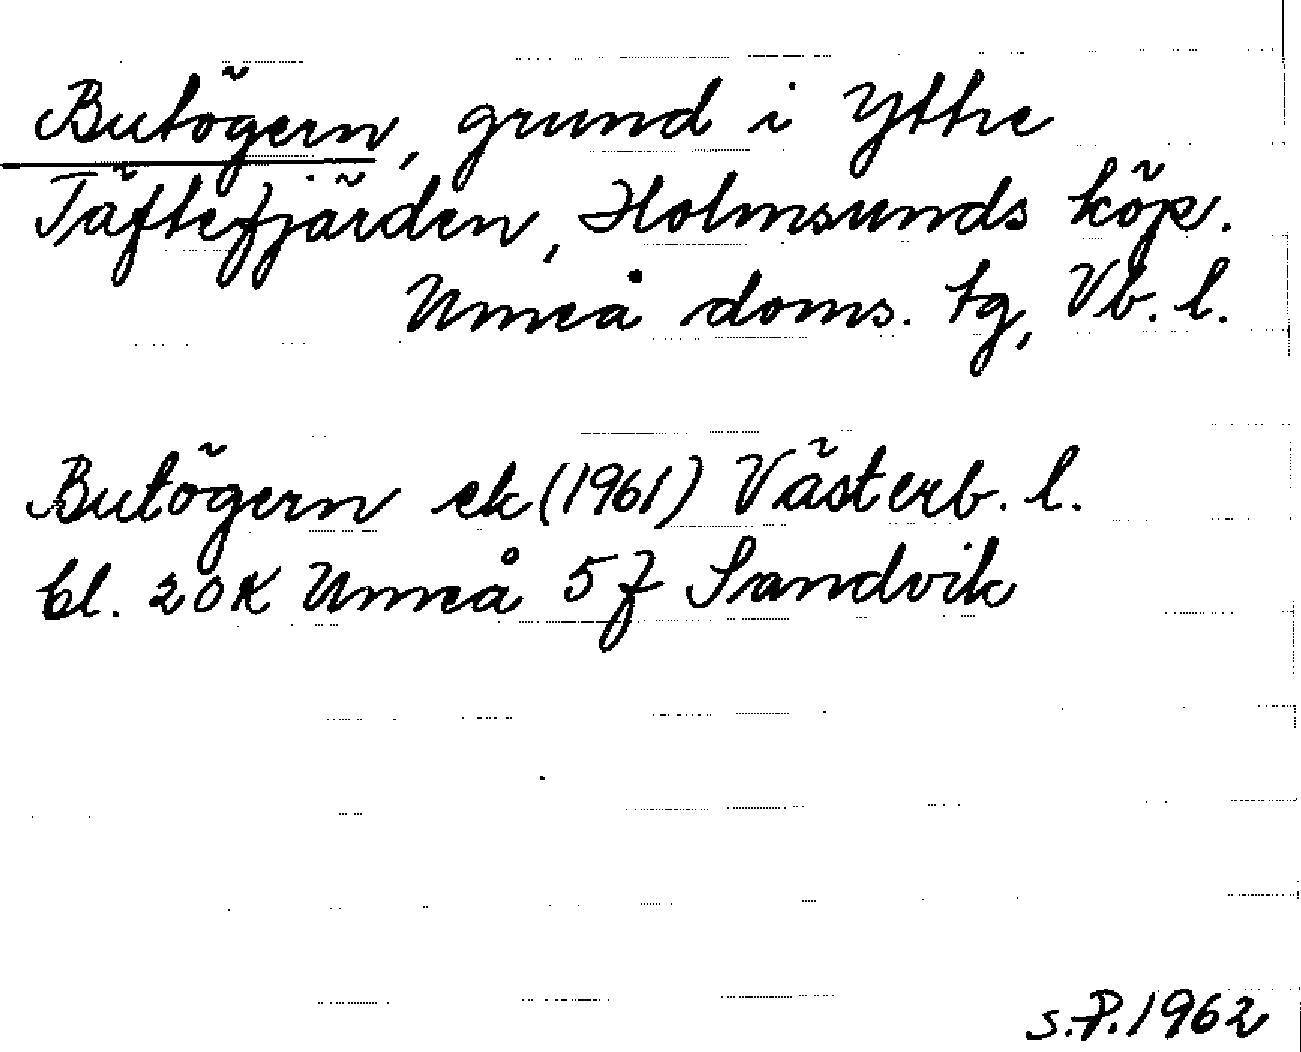 Butögern, grund i Yttre
Täftefjärden, Holmsunds köp.
Umeå doms. tg, Vb. l.
Butögern ek (1961) Västerb. l.
bl. 20K Umeå 5f Sandvik
S.P. 1962